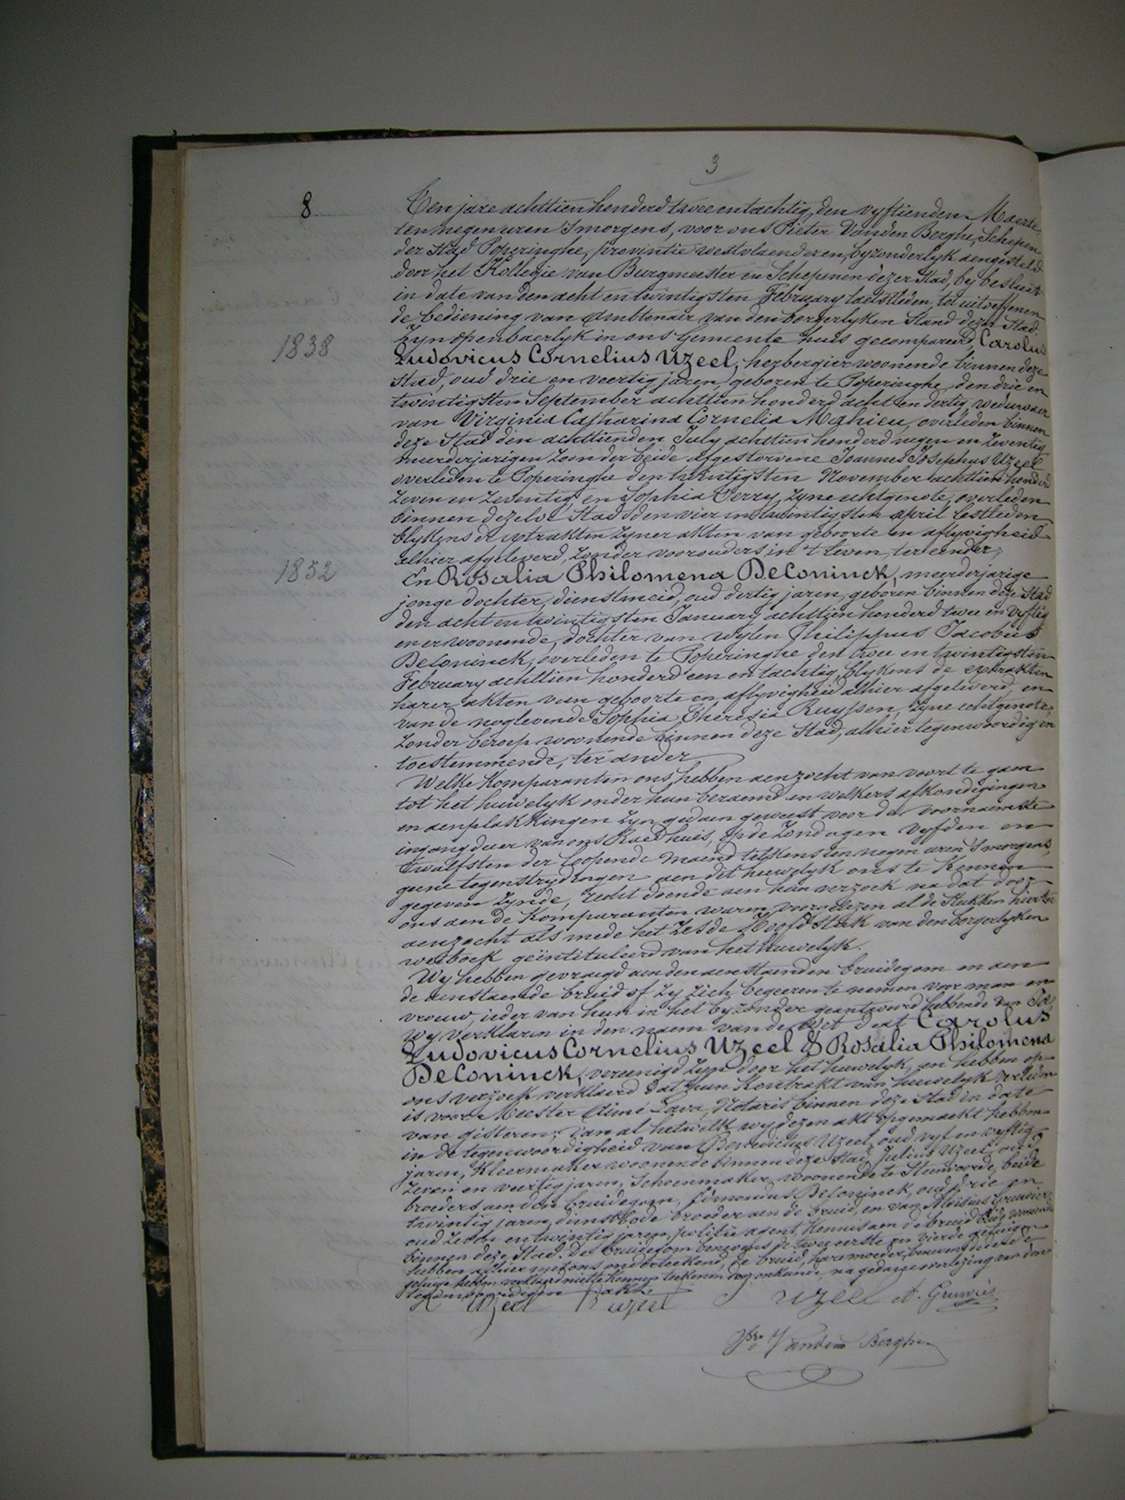 3
8
Ten jare achttien honderd twee en tachtig, den vyftienden Maerte,
ten negen uren 'smorgens, voor ons Pieter Vanden Berghe, Schepen
der Stad Poperinghe, provintie westvlaenderen, byzonderlyk aengesteld
door het Kollegie van Burgmeester en Schepenen dezer Stad, by besluit
in date van den acht en twintigsten February laetstleden, tot uitoeffenen
de bediening van Ambtenaer van den borgerlyken Stand dezer Stad
zyn openbaerlyk in ons Gemeente huis gecompareerd, Carolus
1838
Ludovicus Cornelius Uzeel, herbergier woonende binnen deze
Stad, oud drie en veertig jaren, geboren te Poperinghe, den drie en
twintigsten September achttien honderd acht en dertig, weduwaer
van Virginia Catharina Cornelia Mahieu, overleden binnen
deze Stad den achttienden July achttien honderd negen en zeventig,
meerderjarigen zoon der beide afgestorvene Joannes Josephus Uzeel
overleden te Poperinghe den twintigsten November achttien honderd
zeven en zeventig, en Sophia Terry, zyne echtgenote, overleden
binnen dezelve Stad den vier en twintigsten april lestleden
blykens de extrakten zyner akten van geboorte en aflyvigheid
alhier afgeleverd, zonder voorouders in 't leven, ter eender,
1852
En Rosalia Philomena DeConinck, meerderjarige
jonge dochter, dienstmeid, oud dertig jaren, geboren binnen deze Stad
den acht en twintigsten January achttien honderd twee en vyftig
en er woonende, dochter van wylen Philippus Jacobus
DeConinck, overleden te Poperinghe den twee en twintigsten
February achttien honderd een en tachtig, blykens de extrakten
harer akten van geboorte en aflyvigheid alhier afgeleverd, en
van de noglevende Sophia Theresia Ruyssen, zyne echtgenote,
zonder beroep woonende binnen deze Stad, alhier tegenwoordig en
toestemmende, ter ander
Welke Komparanten ons hebben aenzocht van voort te gaen
tot het huwelyk onder hun beraemd en welkers afkondigingen
en aenplakkingen zyn gedaen geweest voor de voornaemste
ingangdeur van ons Raedhuis, op de Zondagen vyfden en
twaelfsten der loopende maend telkens ten negen uren 'smorgens,
geene tegenstrydingen aen dit huwelyk ons te Kennen
gegeven zynde, recht doende aen hun verzoek na dat door
ons aen de Komparanten waren voorgelezen al de Stukken hierten
aenzocht als mede het Zesde Hoofdstuk van den borgerlyken
wetboek geïntituleerd van het huwelyk.
Wy hebben gevraagd aen den aenstaenden bruidegom en aen
de aenstaende bruid of zy zich begeeren te nemen voor man en
vrouw, ieder van hun in het byzonder geantwoord hebbende van Ja,
Wy verklaren in den naem van de Wet dat Carolus
Ludovicus Cornelius Uzeel & Rosalia Philomena
DeConinck, vereenigd zyn door het huwelyk, en hebben op
ons verzoek verklaerd dat hun Kontrakt van huwelyk verleden
is voor Meester Aimé Lava, Notaris binnen deze Stad in date
van gisteren; van al hetwelk wy dezen akt opgemaekt hebben
in de tegenwoordigheid van Benedictus Uzeel, oud vyf en vyftig
jaren, Kleermaker woonende binnen deze Stad, Julius Uzeel, oud
zeven en veertig jaren, Schoenmaker, woonende te Steenvoorde, beide
broeders aen den bruidegom, Edmondus DeConinck, oud drie en
twintig jaren, dienstbode broeder aen de bruid, en van Aloisius Gruwier
oud zeven en twintig jaren, politie agent Kennis aen de bruid beide woonende
binnen deze Stad, de bruidegom benevens de twee eerste en vierde getuigen
hebben alhier met ons onderteekend, de bruid, hare moeder, benevens de derde
getuige hebben verklaerd niet te konnen teekenen door onkunde, na gedane voorlezing van dezen
tegenwoordigen akt.
Uzeel B uzeel Uzeel A. Gruwier
Vanden Berghe